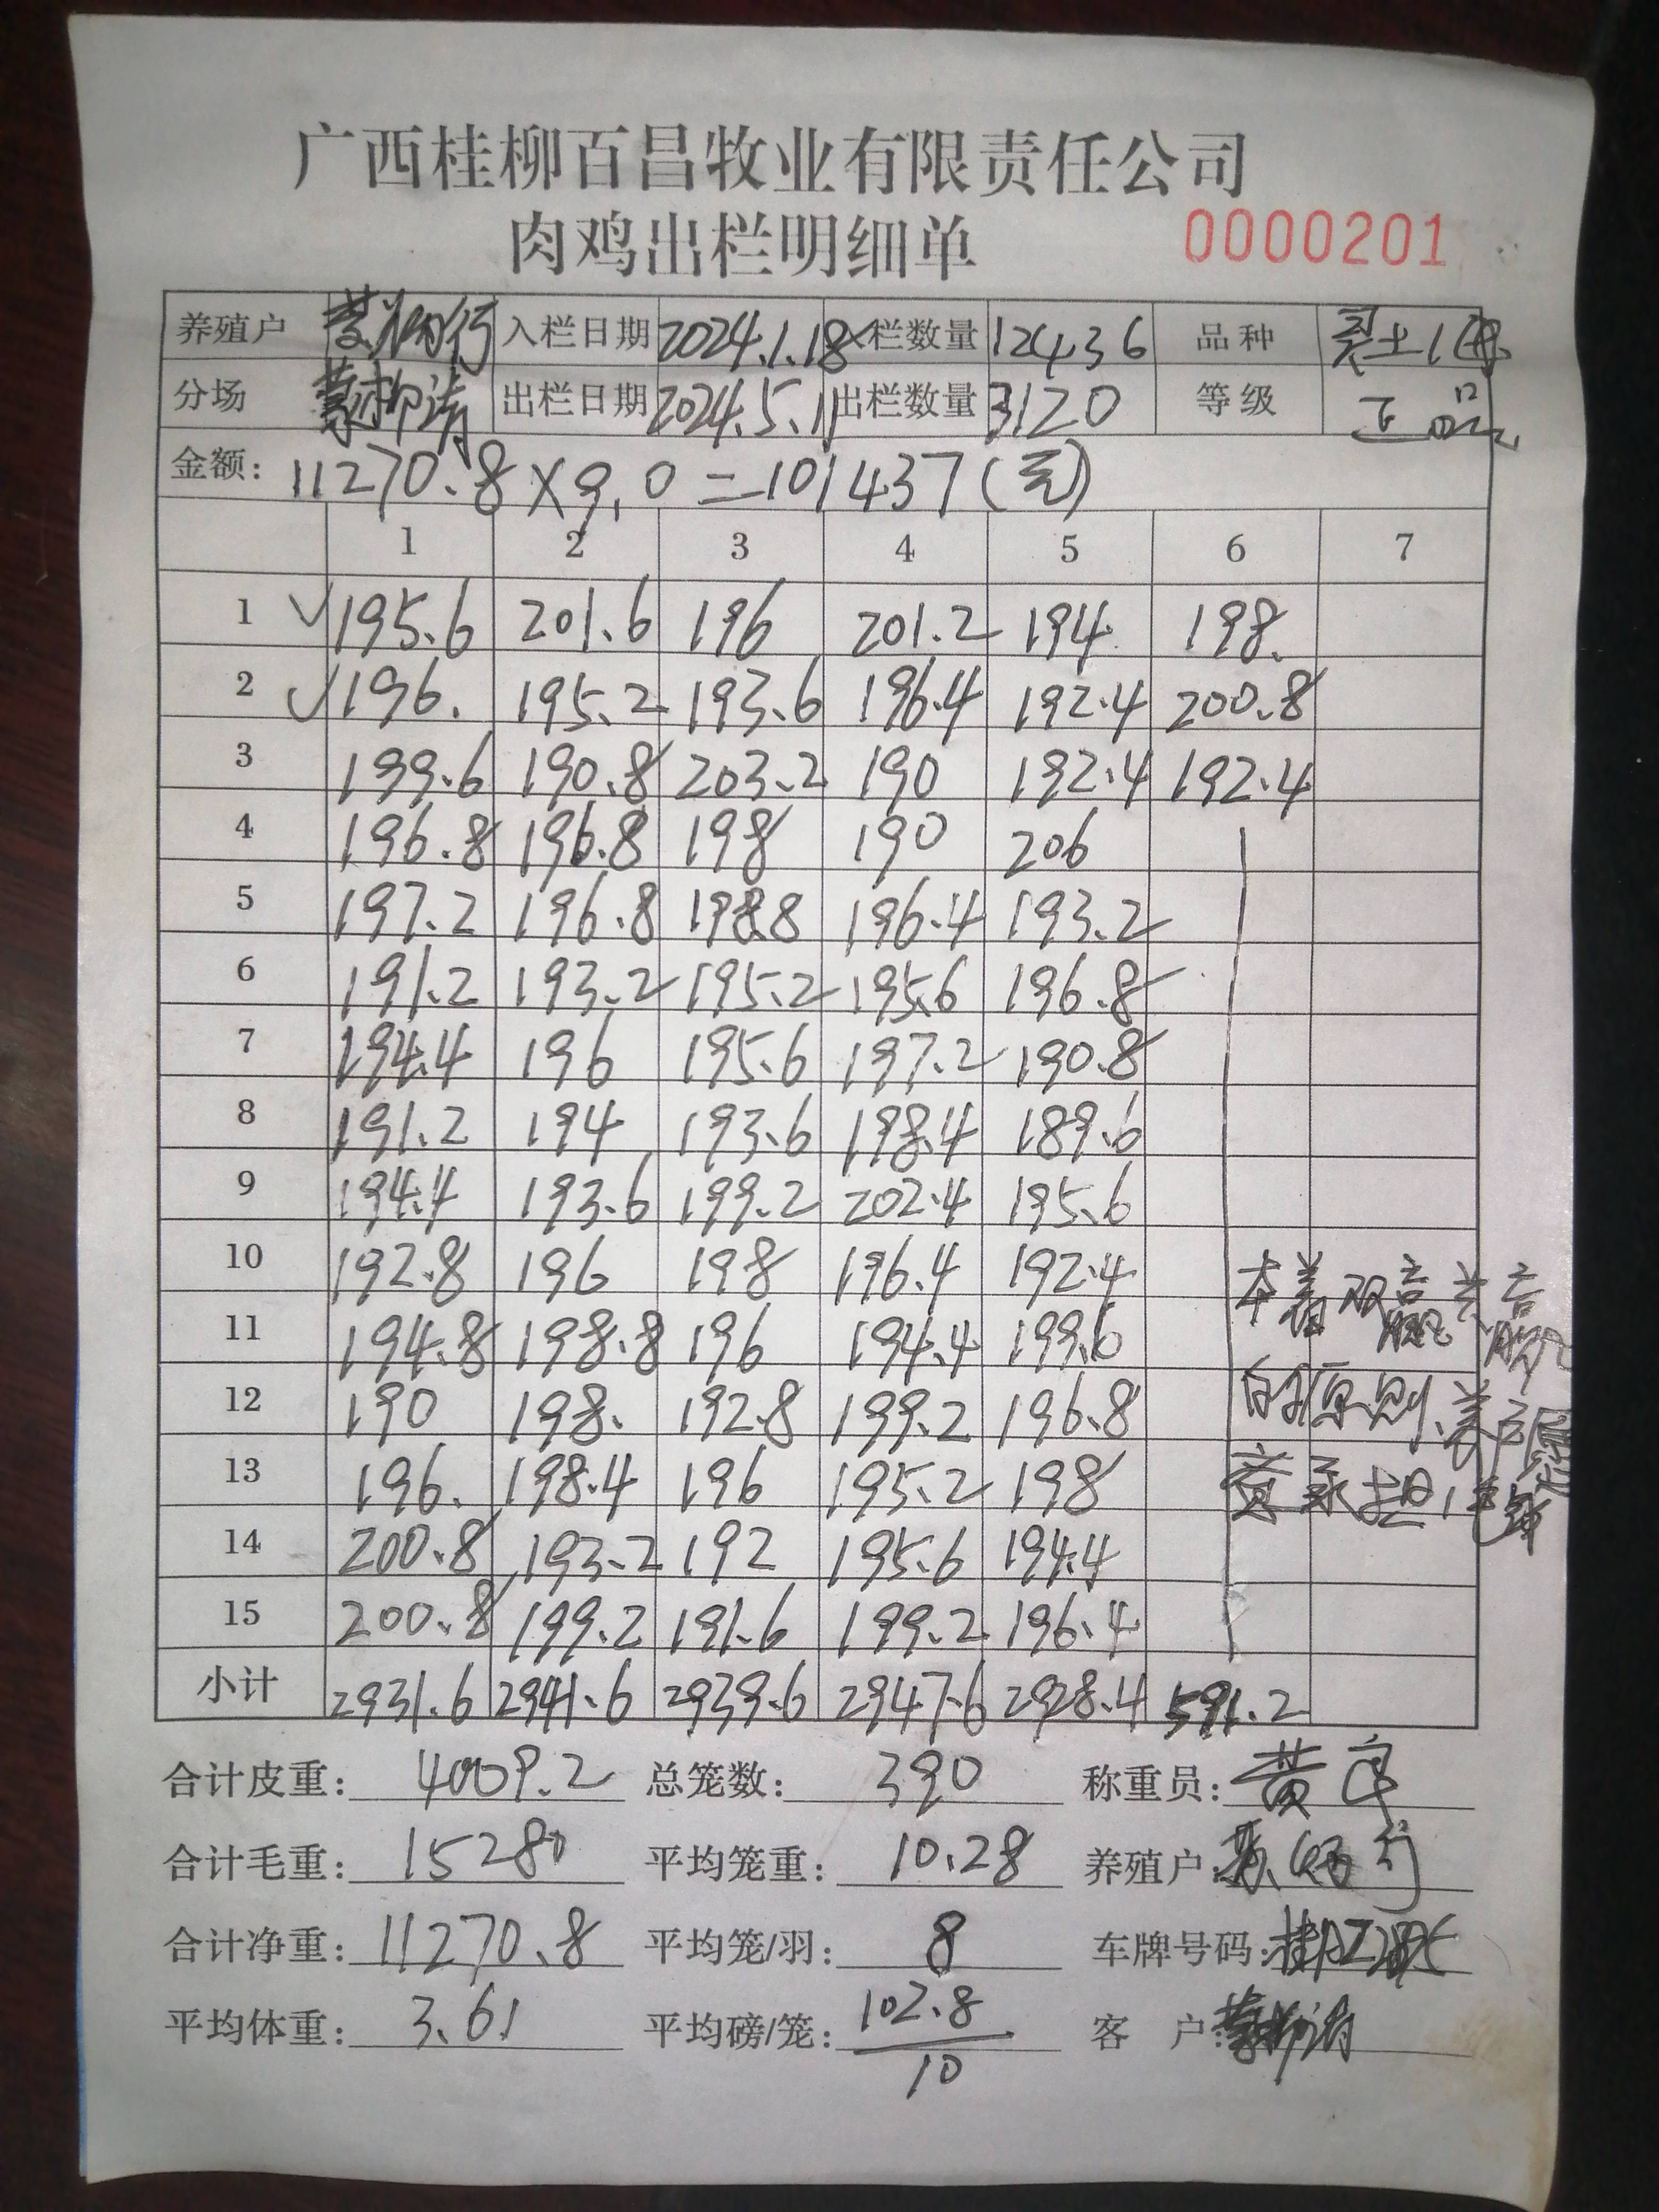 广西桂柳百昌牧业有限责任公司
肉鸡出栏明细单 0000201
养殖户 入栏日期 2024.1.18 入栏数量 12436 品种
分场 蒙柳清 出栏日期 2024.5.11 出栏数量 3120 等级 正品
金额: 11270.8×9.0=101437(元)
1 2 3 4 5 6 7
1 195.6 201.6 196 201.2 194 198.
2 196. 195.2 193.6 196.4 192.4 200.8
3 199.6 190.8 203.2 190 192.4 192.4
4 196.8 196.8 198 190 206
5 197.2 196.8 198.8 196.4 193.2
6 191.2 193.2 195.2 195.6 196.8
7 194.4 196 195.6 197.2 190.8
8 191.2 194 193.6 198.4 189.6
9 194.4 193.6 199.2 202.4 195.6
10 192.8 196 198 196.4 192.4 本着双赢共赢
11 194.8 198.8 196 194.4 199.6
12 190 198. 192.8 199.2 196.8 的原则、养户愿
13 196. 198.4 196 195.2 198 意承担
14 200.8 193.2 192 195.6 194.4
15 200.8 199.2 191.6 199.2 196.4
小计 2931.6 2941.6 2939.6 2947.6 2928.4 591.2
合计皮重: 4009.2 总笼数: 390 称重员:
合计毛重: 15280 平均笼重: 10.28 养殖户:
合计净重: 11270.8 平均笼/羽: 8 车牌号码:
平均体重: 3.61 平均磅/笼: 102.8 客 户: 蒙柳清
10